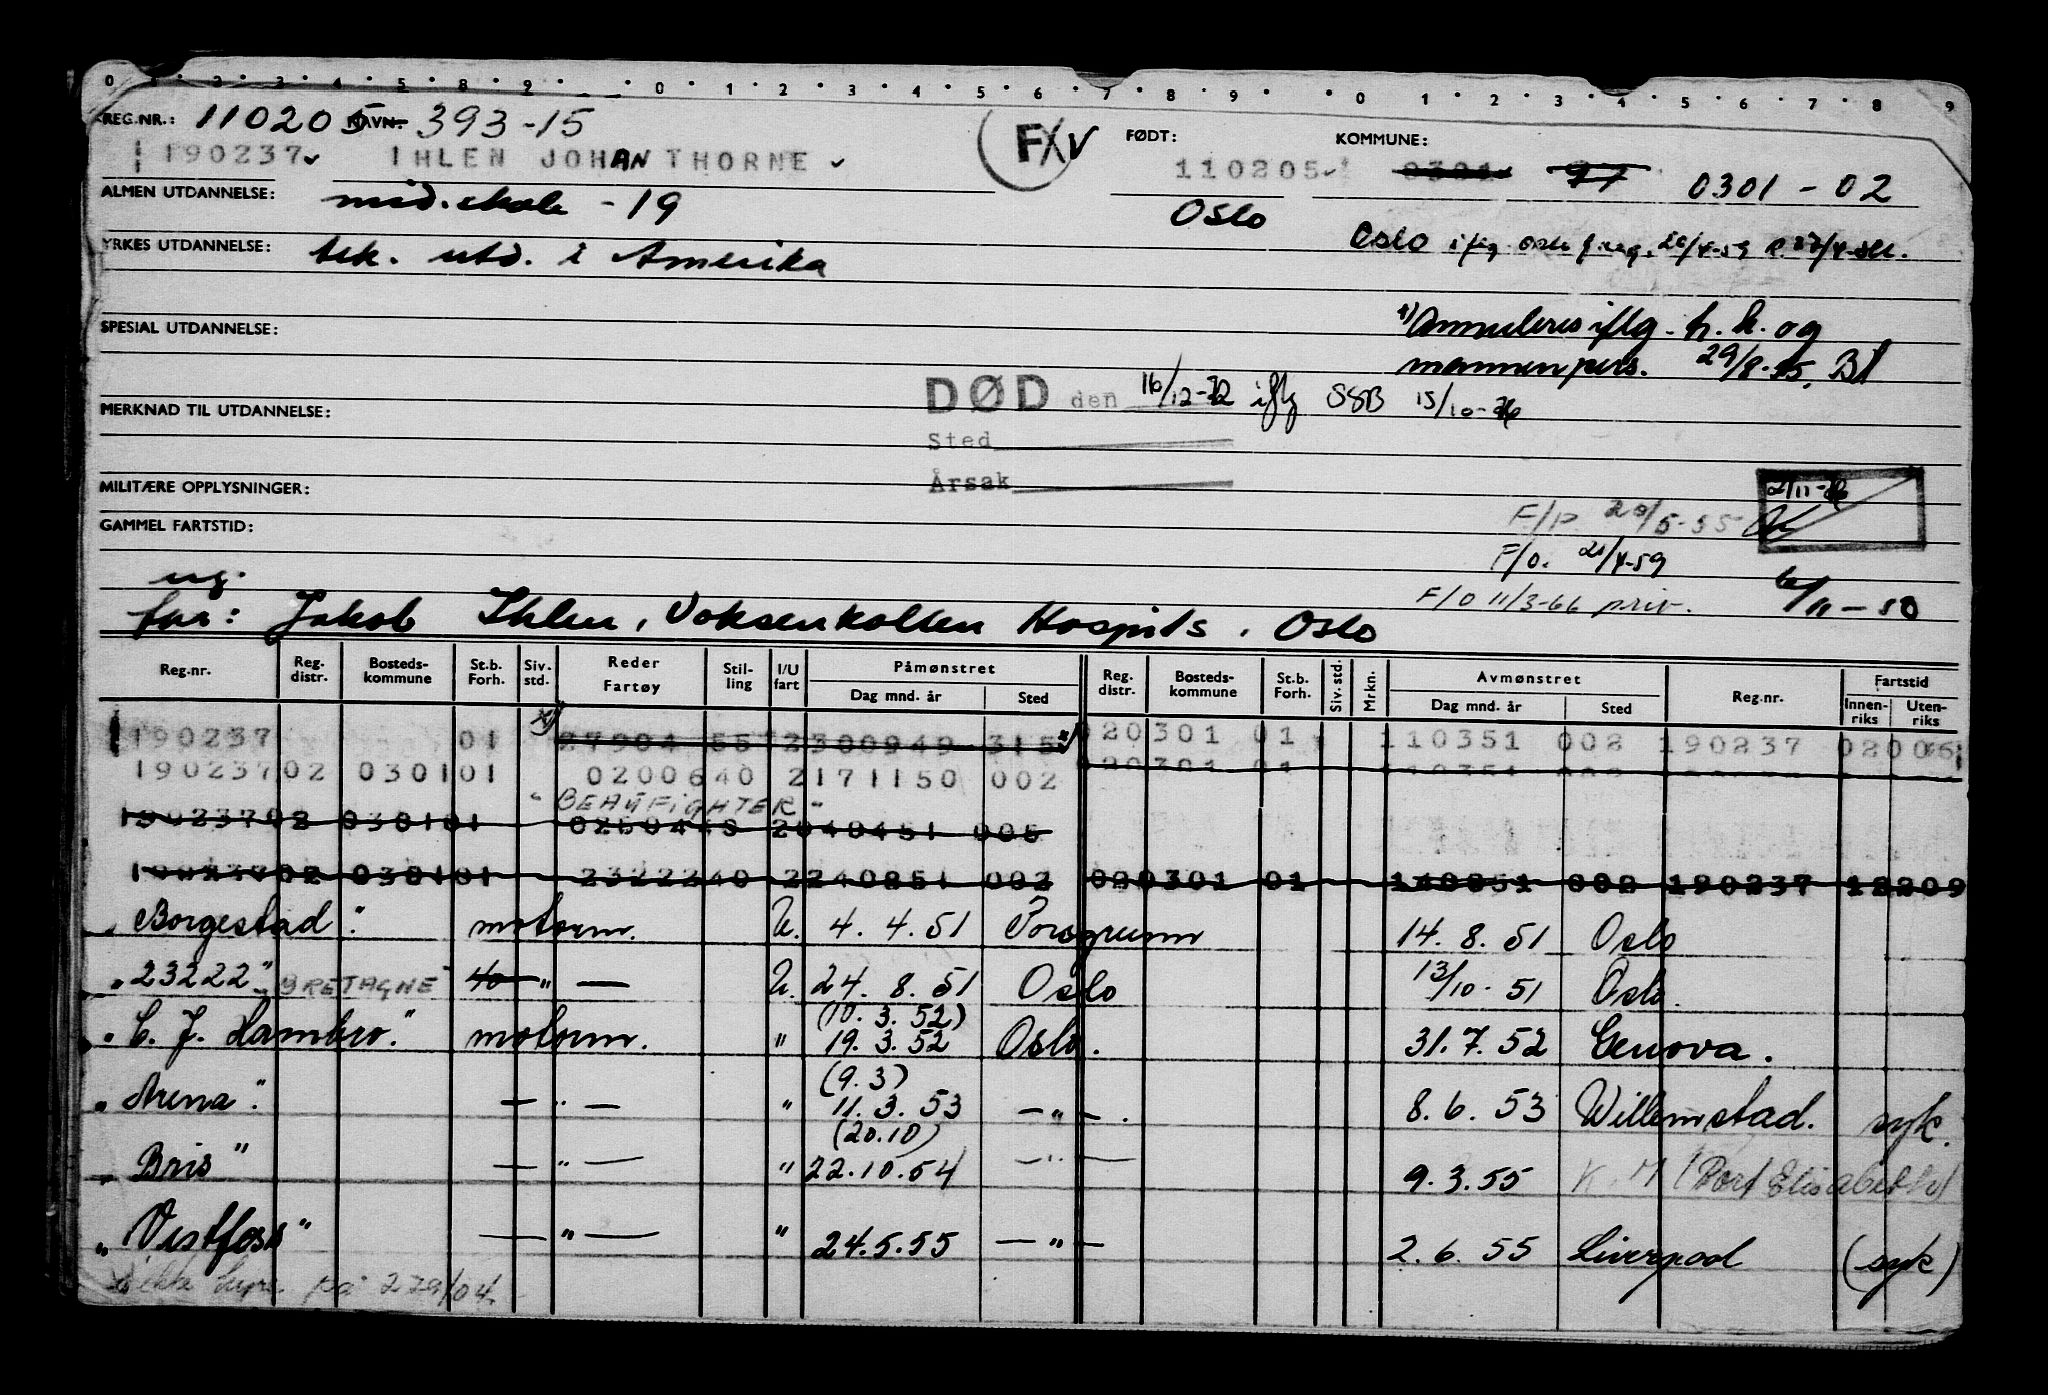 0 1 2 3 4 5 8 9 0 1 2 3 4 5 6 7 8 9 0 1 2 3 4 5 6 7 8 9
REG.NR.: 110205 NAVN: 393-15 FØDT: KOMMUNE:
190237 IHLEN JOHAN THORNE FXV 110205 0301 0301-02
ALMEN UTDANNELSE: mid.skole -19 Oslo
YRKES UTDANNELSE: tek. utd. i Amerika Oslo
SPESIAL UTDANNELSE: *) Annuleres iflg. h.k. og
mannen pers. 29/8-55. Bl
DØD den 16/12-72 iflg SSB 15/10-76
MERKNAD TIL UTDANNELSE:
Sted
Årsak
MILITÆRE OPPLYSNINGER: 2/11-76
F/P. 20/5-55
GAMMEL FARTSTID:
F/O. 21/4-59
ug. F/O 11/3-66 priv. 6/11-50
far: Jakob Ihlen, Voksenkollen Hospits, Oslo
Reg.nr. Reg. distr. Bosteds-kommune St.b. Forh. Siv. std. Reder Fartøy Stil-ling I/U fart Påmønstret Dag mnd. år Sted Reg. distr. Bosteds-kommune St.b. Forh. Siv. std. Mrkn. Avmønstret Dag mnd. år Sted Reg.nr. Fartstid Innen-riks Uten-riks
190237 01 *) 27904 55 2 300949 315 *) 020301 01 110351 002 190237 020051
190237 02 0301 01 02006 40 2 171150 002
"BEAUFIGHTER"
190237 02 0301 01 02604 40 2 040451 005
190237 02 0301 01 23222 40 2 240851 002 020301 01 140851 002 190237 12209
"Borgestad" motorm. U. 4.4.51 Porsgrunn 14.8.51 Oslo
"23222" BRETAGNE 40 " — U. 24.8.51 Oslo 13/10-51 Oslo.
(10.3.52)
"C. J. Hambro." motorm. " 19.3.52 Oslo. 31.7.52 Genova.
(9.3)
"Arena". — " — " 11.3.53 — " —. 8.6.53 Willemstad. syk.
(20.10)
"Bris" — " — " 22.10.54 — " — 9.3.55 K.M (Port Elisabeth)
"Vestfoss" — " — " 24.5.55 — " — 2.6.55 Liverpool (syk)
ikke på 279/04.